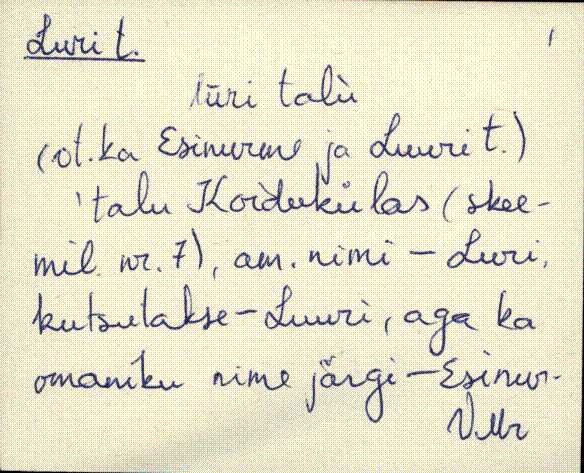 Luri t. 1
lüri talù
(vt. ka Esinurme ja Luuri t.)
'talu Koidukülas (skee-
mil nr. 7), am. nimi - Luri,
kutsutakse - Luuri, aga ka
omaniku nime järgi - Esinur-
V.Mr